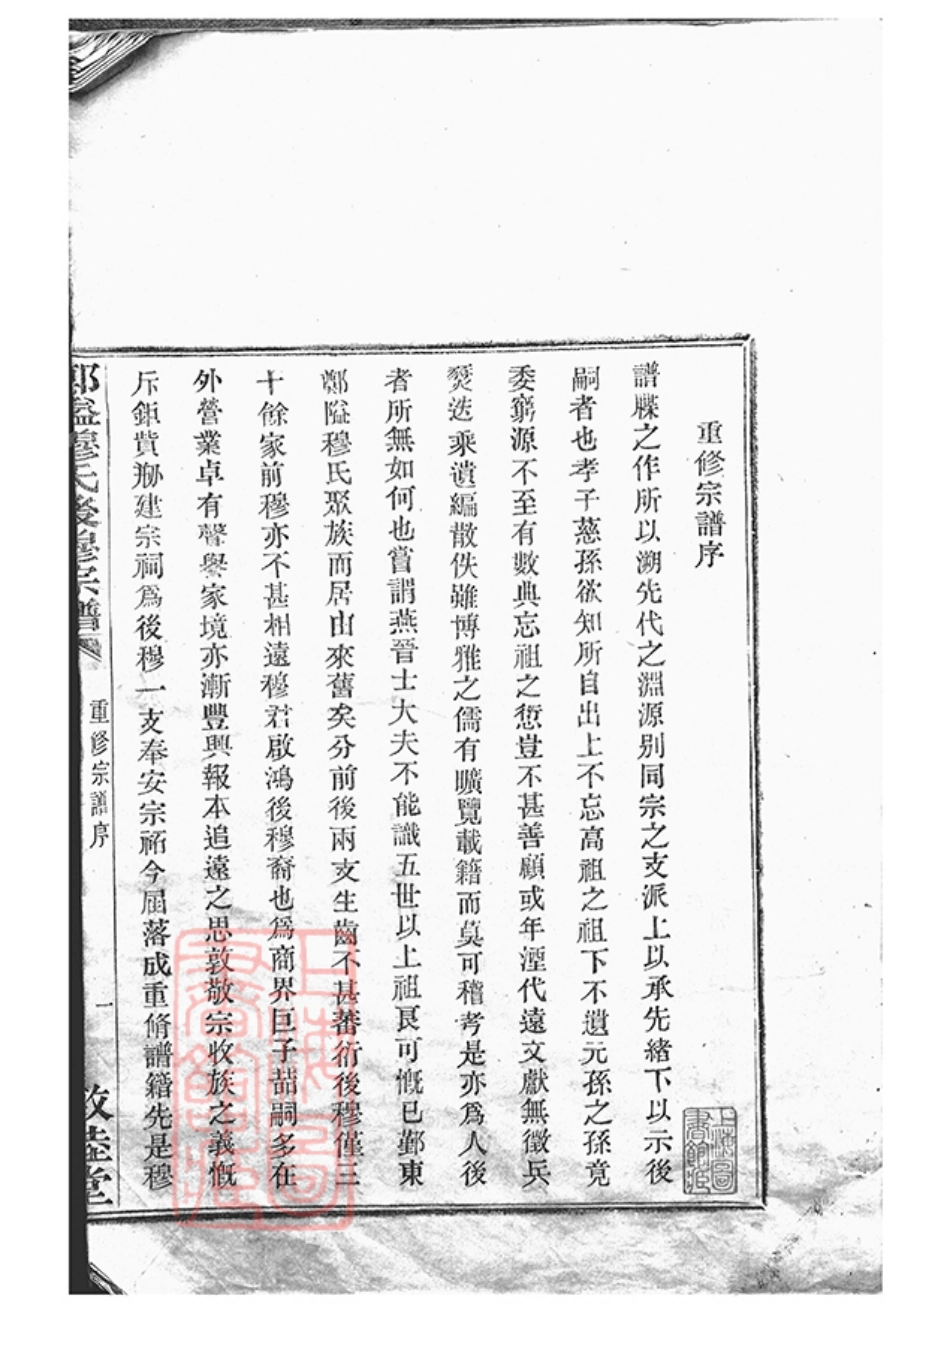 重修宗譜序
譜牒之作所以溯先代之淵源别同宗之支派上以承先緒下以示後
嗣者也孝子慈孫欲知所自出上不忘高祖之祖下不遺元孫之孫竟
委窮源不至有數典忘祖之愆豈不甚善顧或年湮代遠文獻無徵兵
燹迭乘遺編散佚雖博雅之儒有曠覽載籍而莫可稽考是亦爲人後
者所無如何也嘗謂燕晉士大夫不能識五世以上祖良可慨已鄞東
鄭隘穆氏聚族而居由來舊矣分前後兩支生齒不甚蕃衍後穆僅三
十餘家前穆亦不甚相遠穆君啟鴻後穆裔也爲商界巨子喆嗣多在
外營業卓有聲譽家境亦漸豐興報本追遠之思敦敬宗收族之義慨
斥鉅貲剏建宗祠爲後穆一支奉安宗祏今屆落成重脩譜籍先是穆
鄭隘穆氏後穆宗譜
重修宗譜序
一
敦睦堂
上海圖書館藏
上海圖書館藏